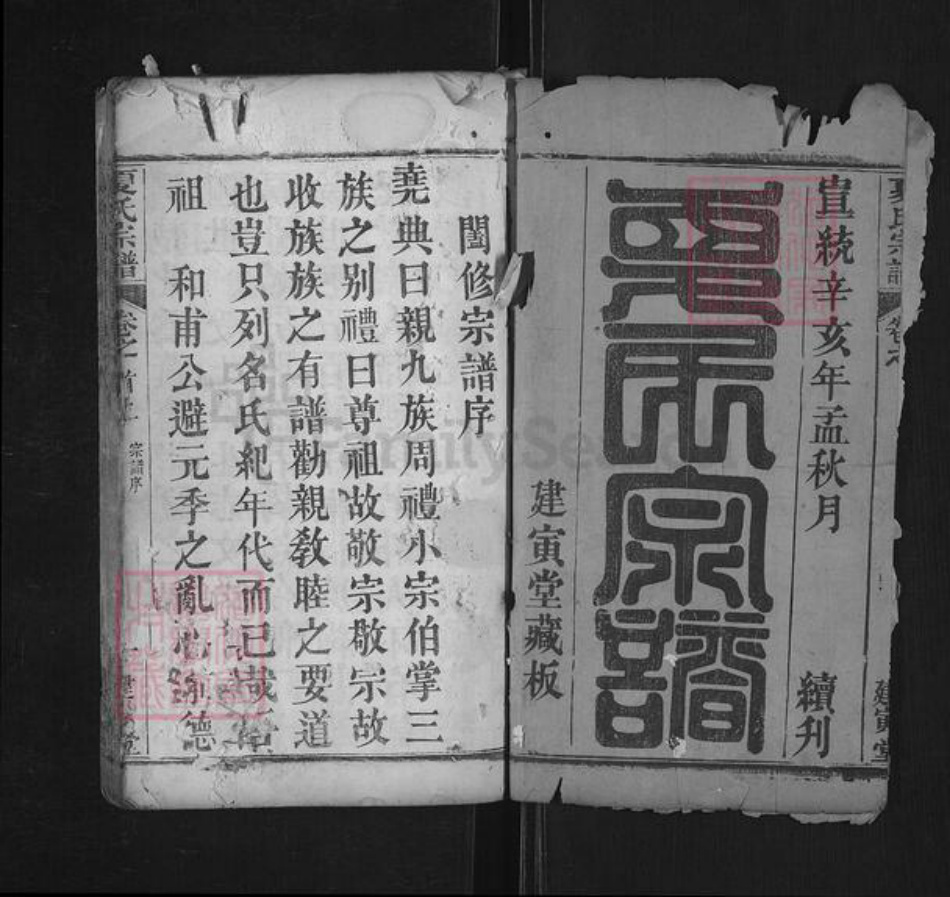 宣統辛亥年孟秋月
續刊
夏氏宗譜
建寅堂藏板
夏氏宗譜
建寅堂
闔修宗譜序
堯典曰親九族周禮小宗伯掌三
族之別禮曰尊祖故敬宗敬宗故
收族族之有譜勸親敎睦之要道
也豈只列名氏紀年代而已哉
祖 和甫公避元季之亂 德
夏氏宗譜
卷之一首上
宗譜序
FamilySearch